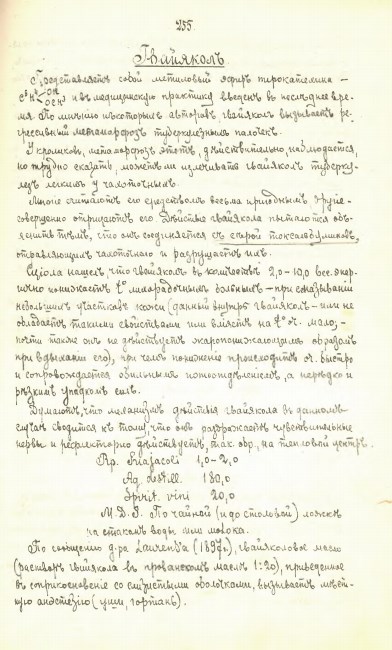 255.
Гваяколъ
Представляетъ собой метиловый эфиръ пирокатехина –
C⁶H⁴ OH OCH³ и въ медицинскую практику введенъ въ послѣднее вре-
мя. По мнѣнію нѣкоторыхъ авторовъ гваяколъ вызываетъ ре-
грессивный метаморфозъ туберкулезныхъ палочекъ.
У кроликовъ, метаморфозъ этотъ, дѣйствительно, наблюдается,
но трудно сказать, можетъ ли излечивать гваяколъ туберку-
лезъ легкихъ у
Многіе считаютъ его средствомъ весьма пригоднымъ, другіе –
совершенно отрицаютъ его. Дѣйствіе гваякола пытаются объ-
яснить тѣмъ, что онъ соединяется съ сѣрой токсальбуминовъ,
отравляющихъ и разрушаетъ ихъ.
Сціола нашелъ, что гваяколъ въ количествѣ 2,0–10,0 все энер-
гично понижаетъ t° лихорадочныхъ больныхъ – при смазываніи
небольшихъ участковъ кожи (данный внутрь гваяколъ – или не
обладаетъ такими свойствами или вліяетъ на t° оч. мало, –
почти также онъ не дѣйствуетъ жаропонижающимъ образомъ
при вдыханіи его), при чемъ пониженіе происходитъ оч. быстро
и сопровождается обильнымъ потоотдѣленіемъ, а нерѣдко и
рѣзкимъ упадкомъ силъ.
Думаютъ, что механизмъ дѣйствія гваякола въ данномъ
случаѣ сводится къ тому, что онъ раздражаетъ чувствительные
нервы и рефлекторно дѣйствуетъ, так. обр., на тепловой центръ.
Rp. Guajacoli 1,0–2,0
Aq. destill. 180,0
Spirit. vini 20,0
M. D. S. По чайной (и до столовой) ложкѣ
на стаканъ воды или молока.
По сообщенію д-ра (1897г.), гваяколовое масло
(растворъ гваякола въ прованскомъ маслѣ 1:20), приведенное
въ соприкосновеніе со слизистыми оболочками, вызываетъ мѣст-
ную анэстезію (уши, гортань).